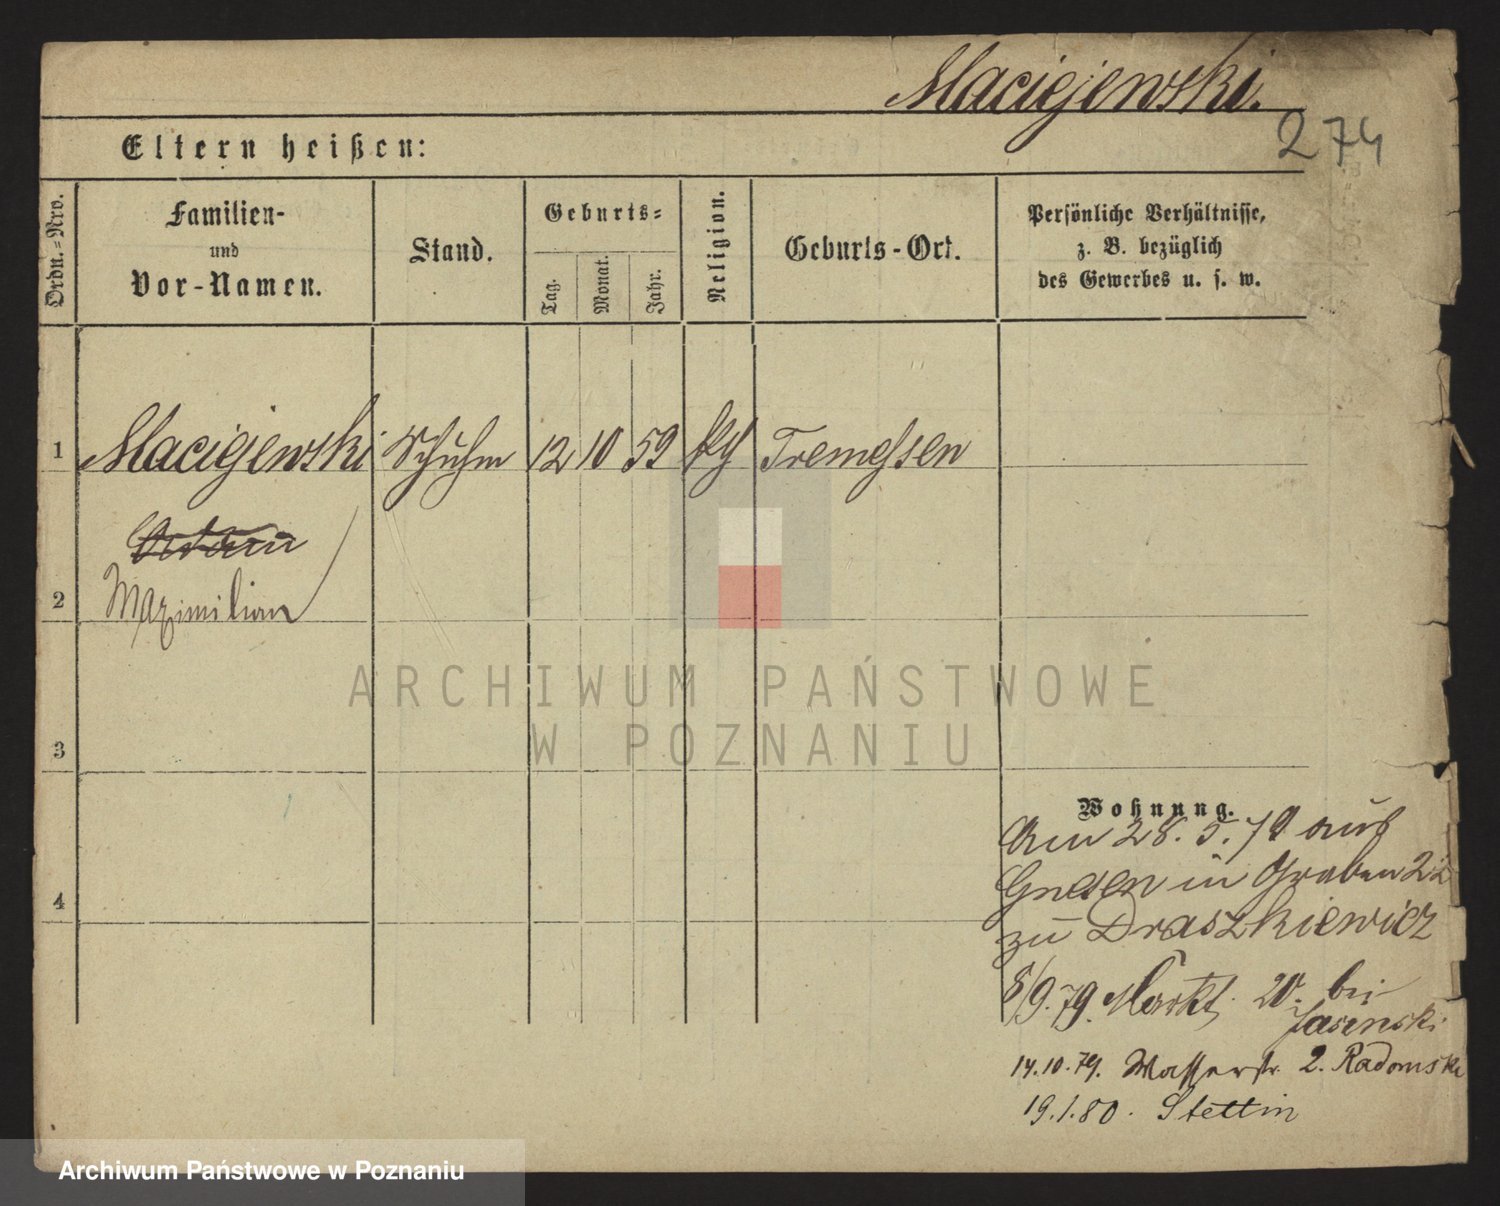 Maciejewski.
274
Eltern heißen:
Ordn.=Nro.
Familien-
und
Vor-Namen.
Stand.
Geburts=
Tag.
Monat.
Jahr.
Religion.
Geburts-Ort.
Persönliche Verhältnisse,
z. B. bezüglich
des Gewerbes u. s. w.
1 Maciejewski Schuhm 12 10 59 kth Tremessen
2 Maximilian
3
4
ARCHIWUM PAŃSTWOWE
W POZNANIU
Wohnung.
Am 28. 5. 79 aus
Gnesen in Graben 22
zu Draszkiewicz
8/9. 79. Markt 20. bei
Jasinski
14.10.79. Wasserstr. 2. Radomski
19.1.80. Stettin
Archiwum Państwowe w Poznaniu